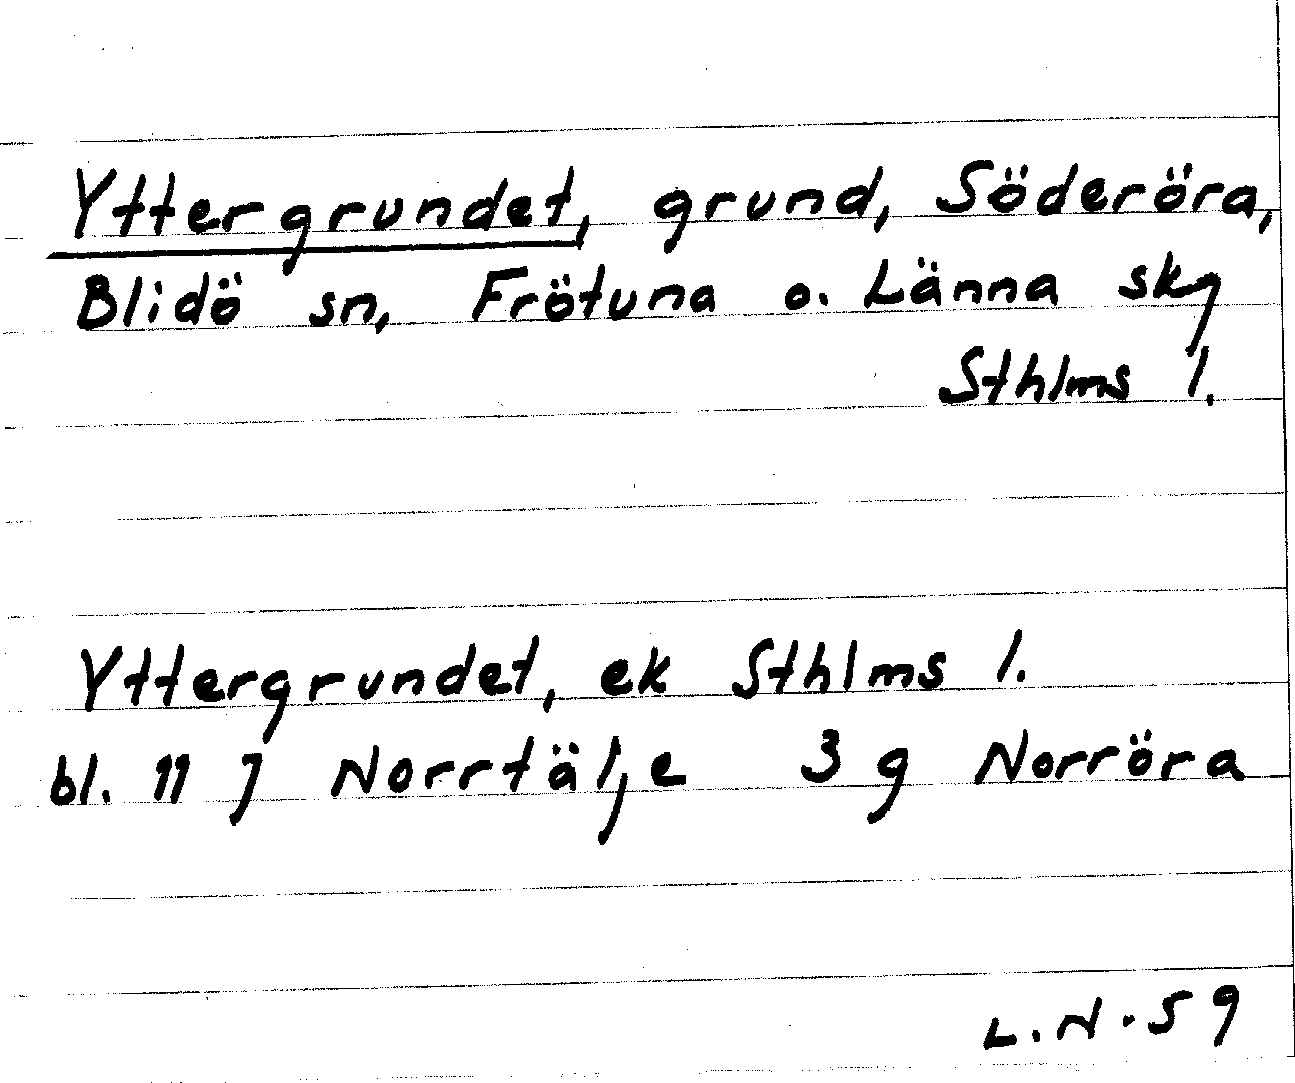 Yttergrundet, grund, Söderöra,
Blidö sn, Frötuna o. Länna skg
Sthlms l.
Yttergrundet, ek Sthlms l.
bl. 11 J Norrtälje 3 g Norröra
L.N. 59